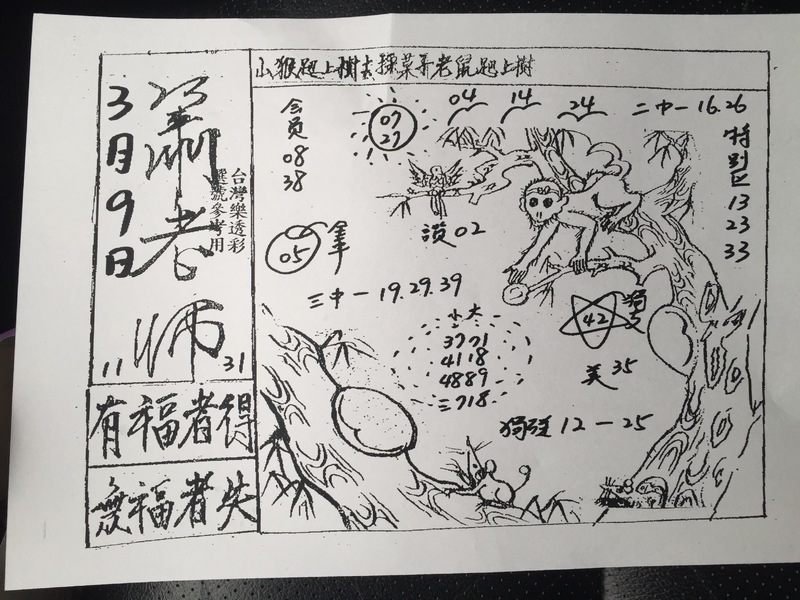 小猴跑上樹去採菜弄老鼠跑上樹
3月9日
蕭老師
台灣樂透彩
選號參考用
11
31
有福者得
無福者失
会员
08
38
07
27
04
14
24
二中一 16.26
特別区
13
23
33
讚02
05
三中一19.29.39
大
3771
4118
4889
三718
42
美35
12-25